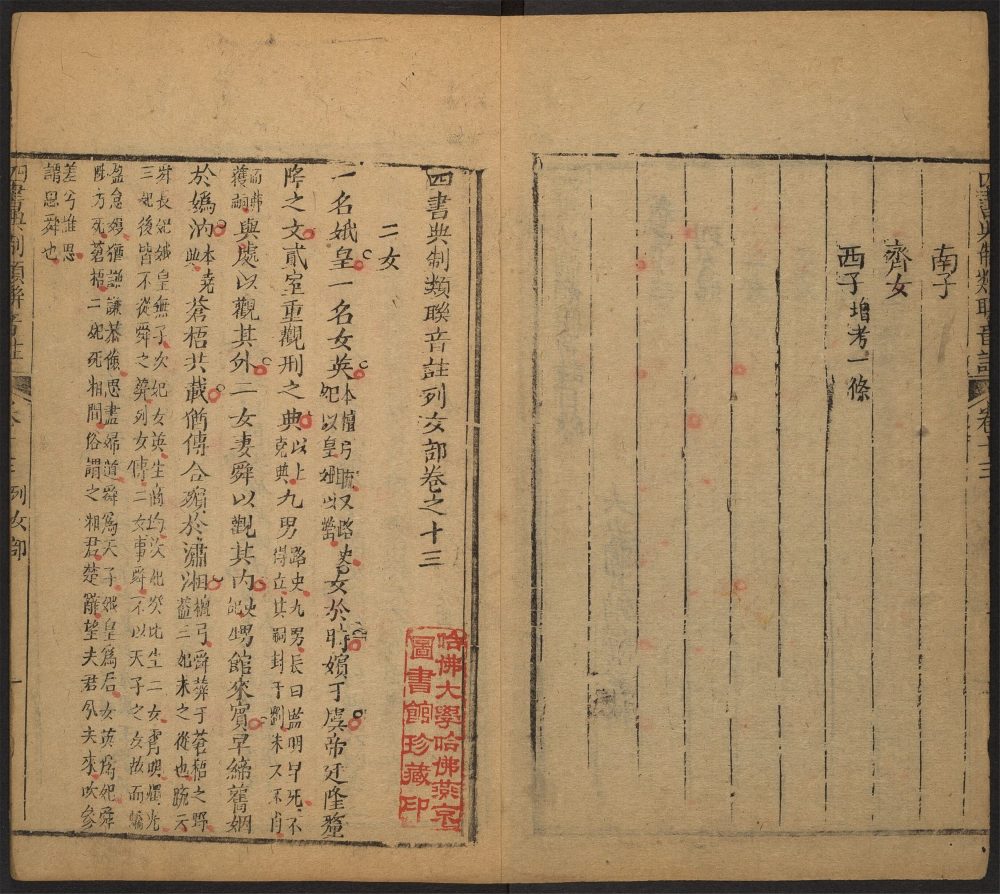 南子
齊女
西子增考一條
四書典制類聯音註 卷十三
四書典制類聯音註列女部卷之十三
二女
一名娥皇一名女英本檀弓疏又路史
妃以皇女於時嬪于虞帝廷隆釐
降之文貳室重觀刑之典以上堯典九男路史九男長曰監明早死不
得立其嗣封于劉朱又不肖
而弗獲嗣與處以觀其外二女妻舜以觀其內史記甥館來賓早締舊姻
於媯汭本堯典蒼梧共載猶傳合殯於瀟湘檀弓舜葬于蒼梧之野
蓋三妃未之從也疏云
舜長妃娥皇無子次妃女英生商均次妃癸比生二女宵明燭光
三妃後皆不從舜之葬列女傳二女事舜不以天子之女故而驕
盈怠嫚猶謙謙恭儉思盡婦道舜為天子娥皇為后女英為妃舜
陟方死蒼梧二妃死湘間俗謂之湘君楚辭望夫君兮夫來吹參
差兮誰思
謂思舜也
四書典制類聯音註 卷十三 列女部 一
哈佛大學哈佛燕京
圖書館珍藏印